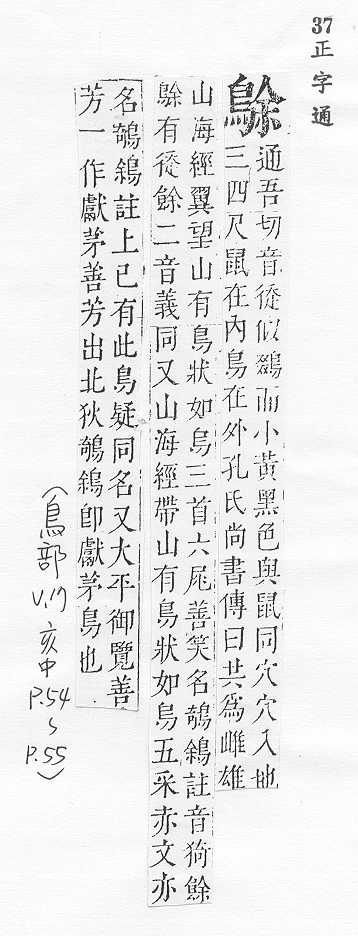 37 正字通
鵌
通吾切音徒似鵽而小黃黑色與鼠同穴穴入地
三四尺鼠在內鳥在外孔氏尚書傳曰共爲雌雄
山海經翼望山有鳥狀如烏三首六尾善笑名鵸鵌註音猗餘
鵌有徒餘二音義同又山海經帶山有鳥狀如烏五采赤文亦
名鵸鵌註上已有此鳥疑同名又太平御覽善
芳一作獻茅善芳出北狄鵸鵌卽獻茅鳥也
(鳥部
亥中
P.54
P.55)